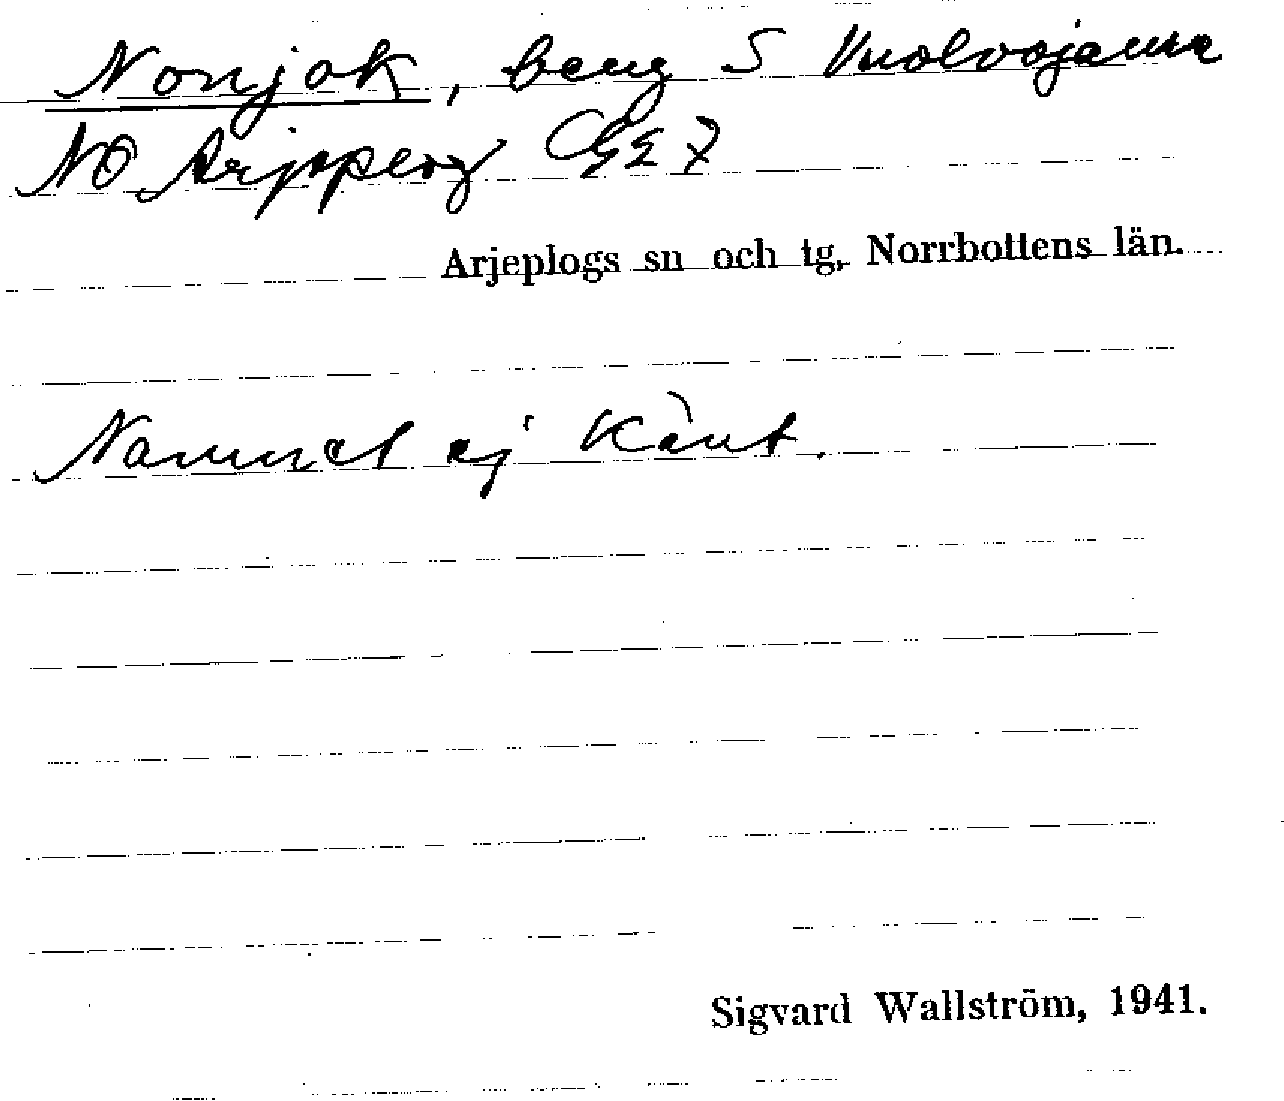 Nonjak, berg S Vuolvojaure
NO Arjepplog GE 7
Arjeplogs sn och tg, Norrbottens län.
Namnet ej känt.
Sigvard Wallström, 1941.